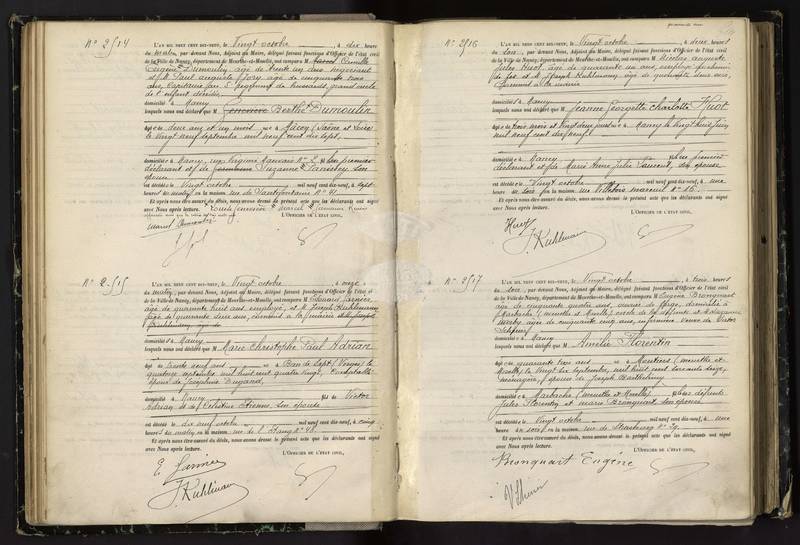 N° 2514
L'AN MIL NEUF CENT DIX-NEUF, le Vingt octobre, à dix heures
du matin, par devant Nous, Adjoint au Maire, délégué faisant fonctions d'Officier de l'état civil
de la Ville de Nancy, département de Meurthe-et-Moselle, ont comparu M Camille
Dumoulin, âgé de trente un ans, négociant
et M Paul âgé de cinquante trois
ans, Capitaine au 5e régiment de hussards, grand oncle
de l'enfant décédée
domicilié à Nancy
lesquels nous ont déclaré que M Geneviève Berthe Dumoulin
âgée de deux ans et un mois née à (Saône et Loire)
le Vingt neuf septembre mil neuf cent dix sept
domiciliée à Nancy, N° 2, fille du premier
déclarant et de Suzanne son
épouse
est décédée le Vingt octobre mil neuf cent dix-neuf, à sept
heures du matin en la maison rue de N° 41
Et après nous être assuré du décès, nous avons dressé le présent acte que les déclarants ont signé
avec Nous après lecture.
L'OFFICIER DE L'ÉTAT CIVIL,
N° 2515
L'AN MIL NEUF CENT DIX-NEUF, le Vingt octobre, à onze heures
du matin, par devant Nous, Adjoint au Maire, délégué faisant fonctions d'Officier de l'état civil
de la Ville de Nancy, département de Meurthe-et-Moselle, ont comparu M Edouard Garnier
âgé de quarante huit ans, employé, et M Joseph Kuhlmann
âgé de quarante deux ans, à la mairie
domiciliés à Nancy
lesquels nous ont déclaré que M Marie Christophe Paul Adrian
âgé de trente neuf ans né à Ban de Sapt (Vosges) le
quatorze septembre mil huit cent quatre vingt, Comptable
époux de Joséphine
domicilié à Nancy fils de Victor
Adrian et de Célestine Etienne, son épouse
est décédé le dix neuf octobre mil neuf cent dix-neuf, à cinq
heures du matin en la maison rue de l'Etang N° 48
Et après nous être assuré du décès, nous avons dressé le présent acte que les déclarants ont signé
avec Nous après lecture.
L'OFFICIER DE L'ÉTAT CIVIL,
E. Garnier
J. Kuhlmann
N° 2516
L'AN MIL NEUF CENT DIX-NEUF, le Vingt octobre, à deux heures
du soir, par devant Nous, Adjoint au Maire, délégué faisant fonctions d'Officier de l'état civil
de la Ville de Nancy, département de Meurthe-et-Moselle, ont comparu M Nicolas Auguste
Jules Huot, âgé de quarante un ans, employé au chemin
de fer et M Joseph Kuhlmann, âgé de quarante deux ans,
à la mairie
domiciliés à Nancy
lesquels nous ont déclaré que M Jeanne Georgette Charlotte Huot
âgée de trois mois et vingt deux jours née à Nancy le vingt huit juin
mil neuf cent dix neuf
domiciliée à Nancy fille du premier
déclarant et de Marie Anne Julie son épouse
est décédée le Vingt octobre mil neuf cent dix-neuf, à une
heure du soir en la maison rue N° 16
Et après nous être assuré du décès, nous avons dressé le présent acte que les déclarants ont signé
avec Nous après lecture.
L'OFFICIER DE L'ÉTAT CIVIL,
Huot
J. Kuhlmann
N° 2517
L'AN MIL NEUF CENT DIX-NEUF, le Vingt octobre, à trois heures
du soir, par devant Nous, Adjoint au Maire, délégué faisant fonctions d'Officier de l'état civil
de la Ville de Nancy, département de Meurthe-et-Moselle, ont comparu M Eugène Bronquart
âgé de cinquante quatre ans, ouvrier de forge, domicilié à
Marbache (Meurthe et Moselle) oncle de la défunte et
âgée de cinquante cinq ans, infirmière, veuve de Victor
domiciliée à Nancy
lesquels nous ont déclaré que M Amélie Florentin
âgée de quarante trois ans née à (Meurthe et
Moselle) le vingt six septembre mil huit cent soixante seize,
ménagère, épouse de Joseph Barthélemy
domiciliée à Marbache (Meurthe et Moselle) fille des défunts
Jules Florentin et Marie Bronquart, son épouse
est décédée le Vingt octobre mil neuf cent dix-neuf, à une
heure du soir en la maison rue de Strasbourg N° 29
Et après nous être assuré du décès, nous avons dressé le présent acte que les déclarants ont signé
avec Nous après lecture.
L'OFFICIER DE L'ÉTAT CIVIL,
Bronquart Eugène